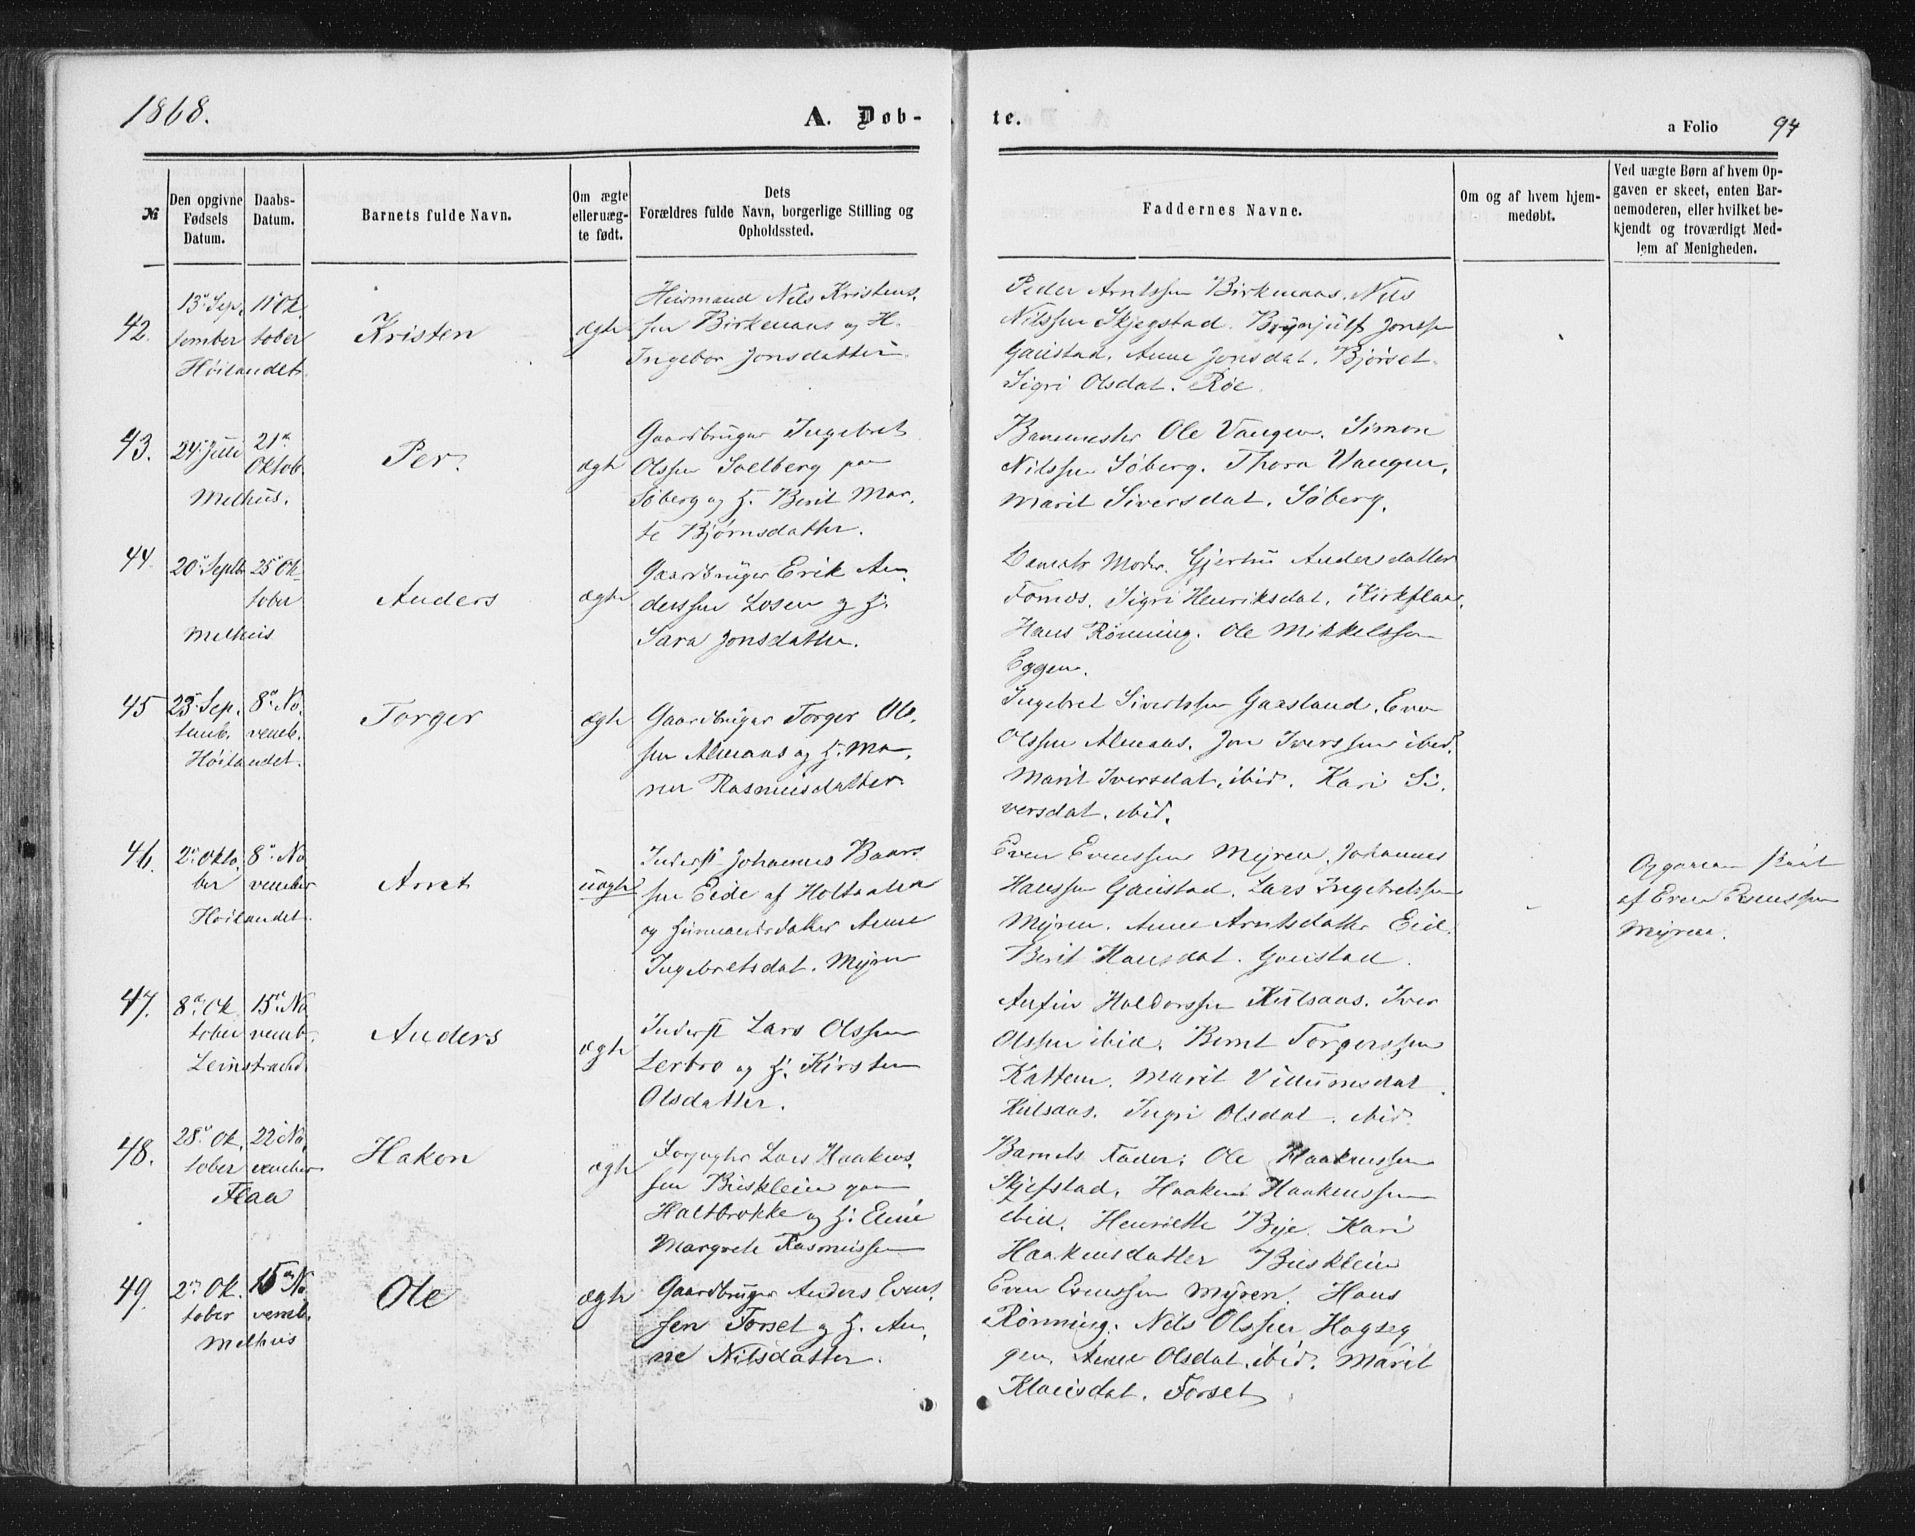 1868.
A. Døb-
te.
a Folio 94
№
Den opgivne
Fødsels
Datum.
Daabs-
Datum.
Barnets fulde Navn.
Om ægte
eller uæg-
te født.
Dets
Forældres fulde Navn, borgerlige Stilling og
Opholdssted.
Faddernes Navne.
Om og af hvem hjem-
medøbt.
Ved uægte Børn af hvem Op-
gaven er skeet, enten Bar-
nemoderen, eller hvilket be-
kjendt og troværdigt Med-
lem af Menigheden.
42.
13de Sep-
tember
11te Ok
tober
Høilandet.
Kristen
ægte
Huusmand Nils Kristens-
sen Birkenaas og H.
Ingebor Jonsdatter.
Peder Arntssen Birkenaas. Nils
Nilssen Skjegstad. Brynjulf Jonssen
Gaustad. Anne Jonsdat. Bjørset.
Sigri Olsdat. Røe.
43.
24. Juli
21de
Oktob.
Melhus.
Per.
ægte
Gaardbruger Ingebret
Olssen Solberg paa
Søberg og H. Berit Mar-
te Bjørnsdatter.
Banemester Ole Vangen. Simon
Nilssen Søberg. Thora Vangen.
Marit Siversdat. Søberg.
44.
20de Septb
25de Ok-
tober
Melhus
Anders
ægte
Gaardbruger Erik An-
derssen Losen og H.
Sara Jonsdatter.
Barnets Moder. Gjertru Andersdatter
Fornes. Sigri Henriksdat. Kirkflaa.
Hans Rønning. Ole Mikkelssen
Eggen.
45
23de Sep.
temb.
8de No-
vemb.
Høilandet.
Torger
ægte
Gaardbruger Torger Ol-
sen Almaas og H. Ma-
ren Rasmusdatter.
Ingebret Sivertssen Gaasland. Even
Olssen Almaas. Jon Iverssen ibid.
Marit Iversdat. ibid. Kari Si-
versdat. ibid.
46.
2den Okto-
ber
8de No
vember
Høilandet.
Arnt
uægte
Inderst Johannes Baars
sen Eide af Holtaalen
og Huusmandsdatter Anne
Ingebretsdat. Myren
Even Evenssen Myren. Johannes
Hanssen Gaustad. Lars Ingebretssen
Myren. Anne Arntsdatter Eid.
Berit Hansdat. Gaustad.
Opgaven skeet
af Even Evenssen
Myren.
47.
8de Ok
tober
15de No
vemb.
Leinstrand.
Anders
ægte
Inderst Lars Olssen
Lerbro og H. Kirsten
Olsdatter.
Anfin Haldorssen Kulsaas. Iver
Olssen ibid. Bernt Torgerssen
Kattem. Marit Villumsdat
Kulsaas. Ingri Olsdat. ibid.
48.
28de Ok.
tober
22de No.
vember
Flaa
Hakon
ægte
Lars Haakens-
sen Busklein paa
Haltbrekke og H. Eline
Margrete Rasmussen
Barnets Fader. Ole Haakenssen
Skjefstad. Haaken Haakenssen
ibid. Henriette Bye. Kari
Haakensdatter Busklein
49.
2den Ok.
tober
15de No
vemb.
Melhus
Ole
ægte
Gaardbruger Anders Evens-
sen Forset og H. An-
ne Nilsdatter.
Even Evenssen Myren. Hans
Rønning. Nils Olssen Hagseg
gen. Anne Olsdat. ibid. Marit
Klausdat. Forset